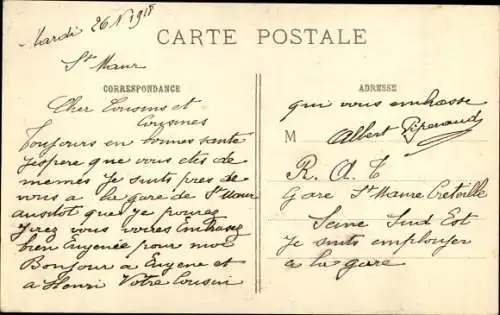 Mardi 26 N 1918
CARTE POSTALE
St Maur
CORRESPONDANCE
Cher Cousins et
Cousines
Toujours en bonnes santé
Jespere que vous etes de
memes Je suits pres de
vous a la gare de St Maur
ausitot que Je pourez
Jirez vous voires Embrasez
bien Eugenée pour moi
Bonjour a Eugene et
a Henri Votre Cousin
ADRESSE
qui vous embrasse
M Albert
R. A. T
Gare St Maure Creteille
Seine Sud Est
Je suits employer
a la gare